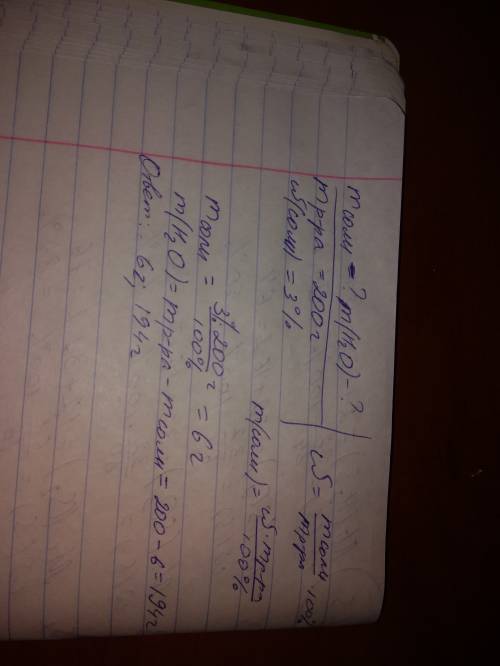 m соли - ? m(H₂O) - ?
m р-ра = 200 г
ω(соли) = 3%
ω = m соли / m р-ра · 100%
m(соли) = ω · m р-ра / 100%
m соли = 3% · 200 г / 100% = 6 г
m(H₂O) = m р-ра - m соли = 200 - 6 = 194 г
Ответ: 6 г; 194 г